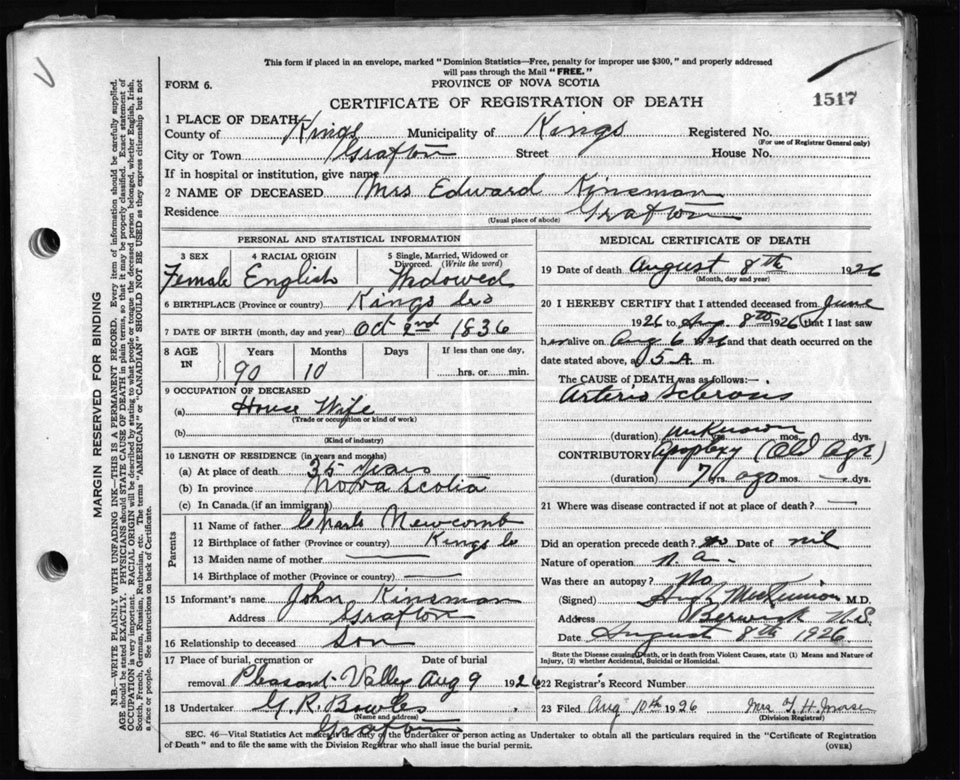 This form if placed in an envelope, marked "Dominion Statistics—Free, penalty for improper use $300," and properly addressed
will pass through the Mail "FREE."
FORM 6.
PROVINCE OF NOVA SCOTIA
CERTIFICATE OF REGISTRATION OF DEATH
1517
1 PLACE OF DEATH
County of Kings Municipality of Kings Registered No.
(For use of Registrar General only)
City or Town Grafton Street House No.
If in hospital or institution, give name
2 NAME OF DECEASED Mrs Edward Kinsman
Residence Grafton
(Usual place of abode)
PERSONAL AND STATISTICAL INFORMATION
3 SEX 4 RACIAL ORIGIN 5 Single, Married, Widowed or Divorced. (Write the word)
Female English Widowed
6 BIRTHPLACE (Province or country) Kings Co
7 DATE OF BIRTH (month, day and year) Oct 2nd 1836
8 AGE IN Years Months Days If less than one day,
90 10 hrs. or min.
9 OCCUPATION OF DECEASED
(a) House Wife
(Trade or occupation or kind of work)
(b)
(Kind of industry)
10 LENGTH OF RESIDENCE (in years and months)
(a) At place of death 35 Years
(b) In province Nova Scotia
(c) In Canada (if an immigrant)
Parents
11 Name of father Charls Newcomb
12 Birthplace of father (Province or country) Kings Co
13 Maiden name of mother —
14 Birthplace of mother (Province or country) —
15 Informant's name John Kinsman
Address Grafton
16 Relationship to deceased Son
17 Place of burial, cremation or removal Date of burial
Pleasant Valley Aug 9 1926
18 Undertaker G. R. Bowles
(Name and address)
Grafton
MEDICAL CERTIFICATE OF DEATH
19 Date of death August 8th 1926
(Month, day and year)
20 I HEREBY CERTIFY that I attended deceased from June
1926 to Aug 8th 1926 that I last saw
her alive on Aug 6 and that death occurred on the
date stated above, at 5 A. m.
The CAUSE OF DEATH was as follows:—
Arterio Sclerosis
(duration) unknown mos. dys.
CONTRIBUTORY Apoplexy (Old Age)
(duration) 7 yrs. ago mos. — dys.
21 Where was disease contracted if not at place of death? —
Did an operation precede death? no Date of nil
Nature of operation n. a.
Was there an autopsy? No
(Signed) Hugh M.D.
Address Berwick N.S.
Date August 8th 1926
State the Disease causing death, or in death from Violent Causes, state (1) Means and Nature of
Injury, (2) whether Accidental, Suicidal or Homicidal.
22 Registrar's Record Number
23 Filed Aug 10th 1926 Mrs H. Morse
(Division Registrar)
SEC. 46—Vital Statistics Act makes it the duty of the Undertaker or person acting as Undertaker to obtain all the particulars required in the "Certificate of Registration
of Death" and to file the same with the Division Registrar who shall issue the burial permit. (OVER)
MARGIN RESERVED FOR BINDING
N.B.—WRITE PLAINLY WITH UNFADING INK—THIS IS A PERMANENT RECORD. Every item of information should be carefully supplied.
AGE should be stated EXACTLY. PHYSICIANS should STATE CAUSE OF DEATH in plain terms, so that it may be properly classified. Exact statement of
OCCUPATION is very important. RACIAL ORIGIN will be described by stating to what people or tongue the deceased person belonged, whether English, Irish,
Scotch, French, German, Russian, Ruthenian, etc. The terms "AMERICAN" or "CANADIAN" SHOULD NOT BE USED as they express citizenship but not
a race or people. See instructions on back of Certificate.